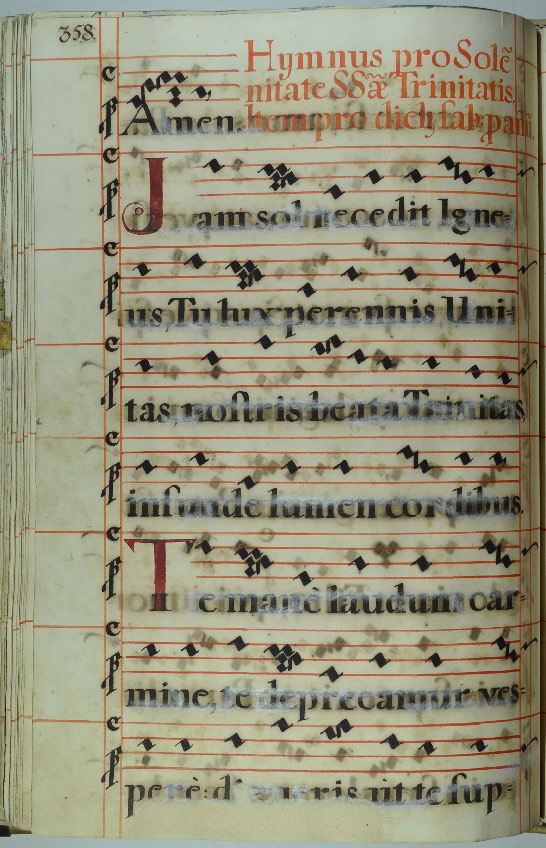 358.
Hymnus pro Solē
nitate SSæ̃ Trinitatis,
Amen. tempro
J am sol recedit Igne=
us, Tu lux perennis Uni=
tas, nostris beata Trinitas,
infunde lumen cordibus.
T e manè laudum car=
mine, te deprecamur ves=
perè: ut te sup=